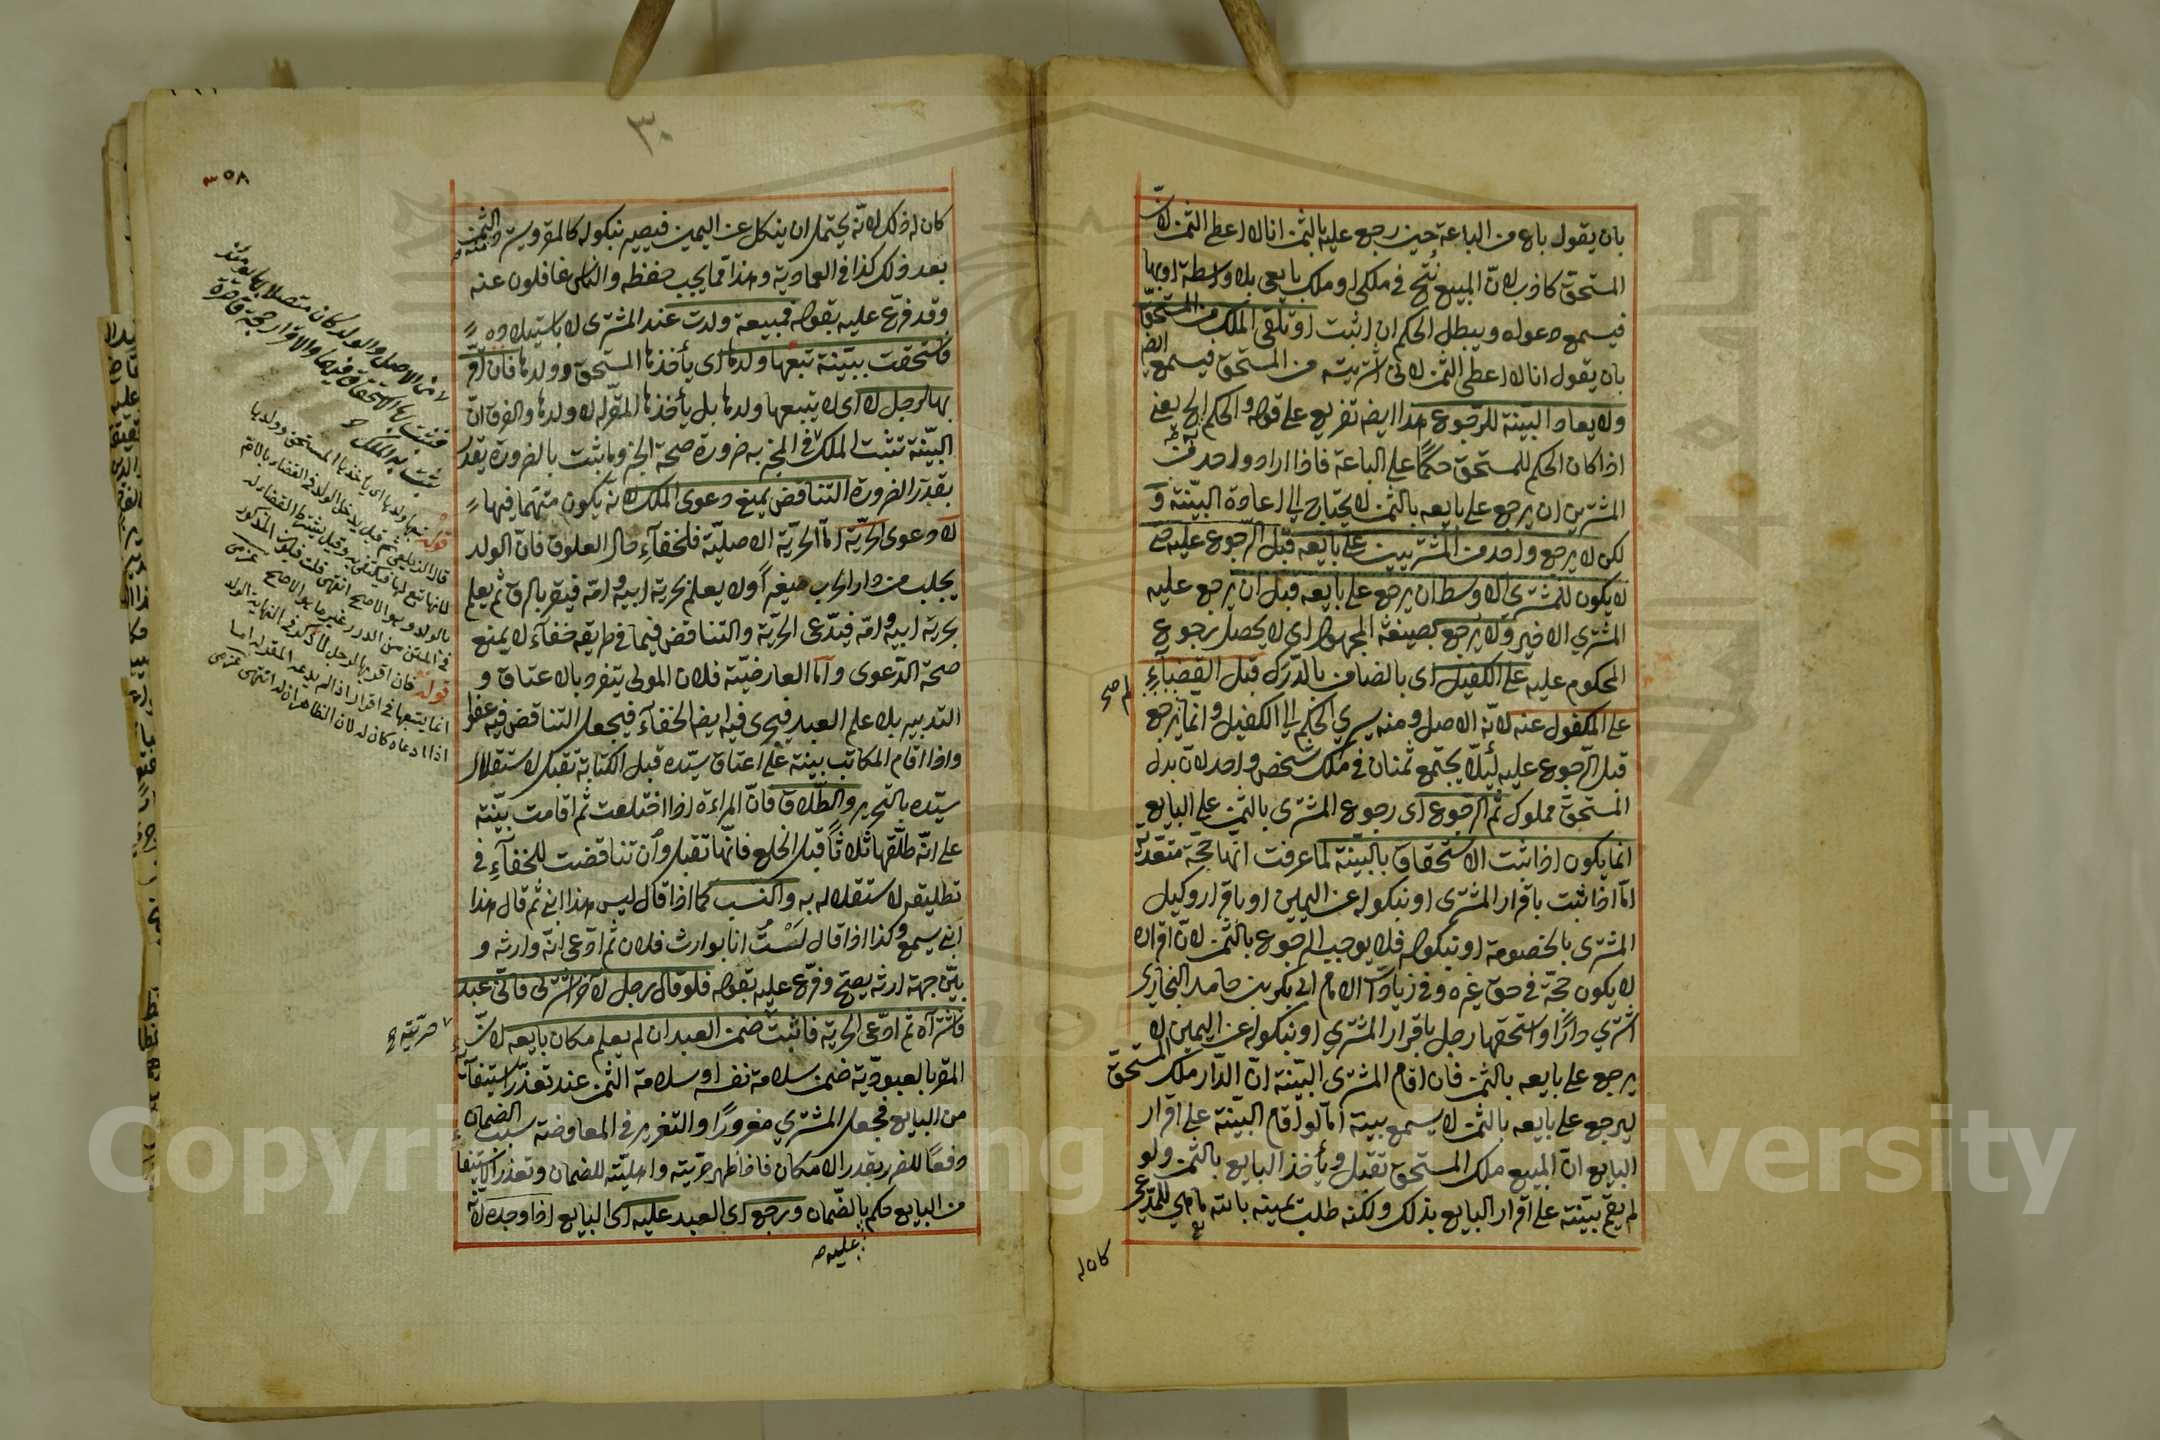 بان يقول بايع من الباعة حين رجع عليه بالثمن انا لا اعطى الثمن لانّ
المستحق كاذب لانّ المبيع نُتج في ملكي او ملك بايعى بلا واسطة او بها
فيسمع دعواه ويبطل الحكم ان اثبت او تلقى الملك من المستحقّ
بان يقول انا لا اعطى الثمن لانى اشتريته من المستحق فيسمع ايضا
ولا يعاد البيّنة للرّجوع هذا ايضا تفريع على قوله والحكم الخ يعنى
اذا كان الحكم للمستحق حكمًا على الباعة فاذا اراد واحد من
المشترين ان يرجع على بايعه بالثمن لا يحتاج الى اعادة البيّنة و
لكن لا يرجع واحد من المشتريين على بايعه قبل الرّجوع عليه حتى
لا يكون للمشترى الاوسط ان يرجع على بايعه قبل ان يرجع عليه
المشتري الاخير ولا يرجع بصيغة المجهول اى لا يحصل رجوع
المحكوم عليه على الكفيل اى بالضامن بالدّرك قبل القضاء
على المكفول عنه لانّه الاصل ومنه يسري الحكم الى الكفيل وانما يرجع
قبل الرّجوع عليه لئلّا يجتمع ثمنان في ملك شخص واحد لانّ بدل
المستحقّ مملوك ثم الرجوع اى رجوع المشترى بالثمن على البايع
انما يكون اذا ثبت الاستحقاق بالبيّنة لما عرفت انّها حجّة متعدّية
امّا اذا ثبت باقرار المشترى او نبكوله عن اليمين او باقرار وكيل
المشترى بالخصومة او نبكوله فلا يوجب الرجوع بالثمن لانّ اقراره
لا يكون حجّة في حق غيره وفي زيادات الامام ابى بكر بن حامد البخارى
اشترى دارًا واستحقها رجل باقرار المشتري او نبكوله عن اليمين لا
يرجع على بايعه بالثمن فان اقام المشترى البيّنة انّ الدّار ملك المستحق
ليرجع على بايعه بالثمن لا يسمع بيّنته امّا لو اقام البيّنة على اقرار
البايع انّ المبيع ملك المستحق تقبل ويأخذ البايع بالثمن ولو
لم يقم بيّنته على اقرار البايع بذلك ولكنه طلب يمينه بالله ما هي للمدّعى
كان له
٣٠
٣٥٨
كان له ذلك لانّه يحتمل ان ينكل عن اليمين فيصير نبكوله كالمقر ويسترد الثمن منه
بعد ذلك كذا في العمادية وهذا مما يجب حفظه والناس غافلون عنه
وقد فرّع عليه بقوله فمبيعة ولدت عند المشترى لا باستيلاده
فاستحقت ببيّنة تبعها ولدها اى يأخذها المستحق وولدها فان اقرّ
بها لرجل لا اى لا يتبعها ولدها بل يأخذها المقرّ له لا ولدها والفرق انّ
البيّنة تثبت الملك في المخبر به ضرورة صحة الخبر وما ثبت بالضرورة يقدر
بقدر الضرورة التناقض يمنع دعوى الملك لانه يكون متهما فيها
لا دعوى الحريّة امّا الحريّة الاصليّة فلخفاء حال العلوق فانّ الولد
يجلب من دار الحرب صغيرًا ولا يعلم بحرية ابيه وامّه فيقر بالرق ثم يعلم
بحرية ابيه وامّه فيدّعى الحريّة والتناقض فيما في طريقه خفاء لا يمنع
صحة الدّعوى وامّا العارضيّة فلان المولى يتفرد بالاعتاق و
التدبير بلا علم العبد فيجرى فيه ايضا الخفاء فيجعل التناقض فيه عفوا
واذا اقام المكاتب بيّنة على اعتاق سيّده قبل الكتابة تقبل لاستقلال
سيّده بالتحرير والطّلاق فانّ المراءة اذا اختلعت ثم اقامت بيّنة
على انّه طلّقها ثلاثًا قبل الخلع فانّها تقبل وان تناقضت للخفاء في
تطليقه لاستقلاله به والنسب كما اذا قال ليس هذا ابنى ثم قال هذا
ابنى يسمع وكذا اذا قال لستُ انا بوارث فلان ثم ادّعى انّه وارثه و
بيّن جهة ارثه يصحّ وفرّع عليه بقوله فلو قال رجل لآخر اشترنى فانّى عبد
فاشتراه ثم ادّعى الحريّة فاثبت ضمن العبد ان لم يعلم مكان بايعه لانّ
المقر بالعبوديّة ضمن سلامة نفسه او سلامة الثمن عند تعذّر استيفائه
من البايع فجعل المشتري مغرورًا والتغرير في المعاوضة سبب الضمان
دفعًا للغرر بقدر الامكان فاذا ظهر حرّيته واهليّته للضمان وتعذر الاستيفاء
من البايع حكم بالضّمان ورجع اى العبد عليه اى البايع اذا وجده لانّه
حرّيته صح
عليه
لا من الاصل والولد كان متصلا بها يومئذ
فثبت بها الاستحقاق فيهما والاقرار حجة قاصرة
ثبت به الملك
قوله تبعها ولدها اى يأخذها المستحق وولدها
قال الزيلعى ثم قيل يدخل الولد في القضاء بالام
لانها تبع لها فيكتفى به وقيل يشترط القضاء له
بالولد وهو الاصح انتهى قلت فيكون المذكور
في المتن من الدرر غير ما هو الاصح عزمى
قوله فان اقر بها لرجل لا ذكر في النهاية الولد
انما يتبعها في اقرار اذا لم يدعه المقر له اما
اذا ادعاه كان له لان الظاهر انه له انتهى عزمى